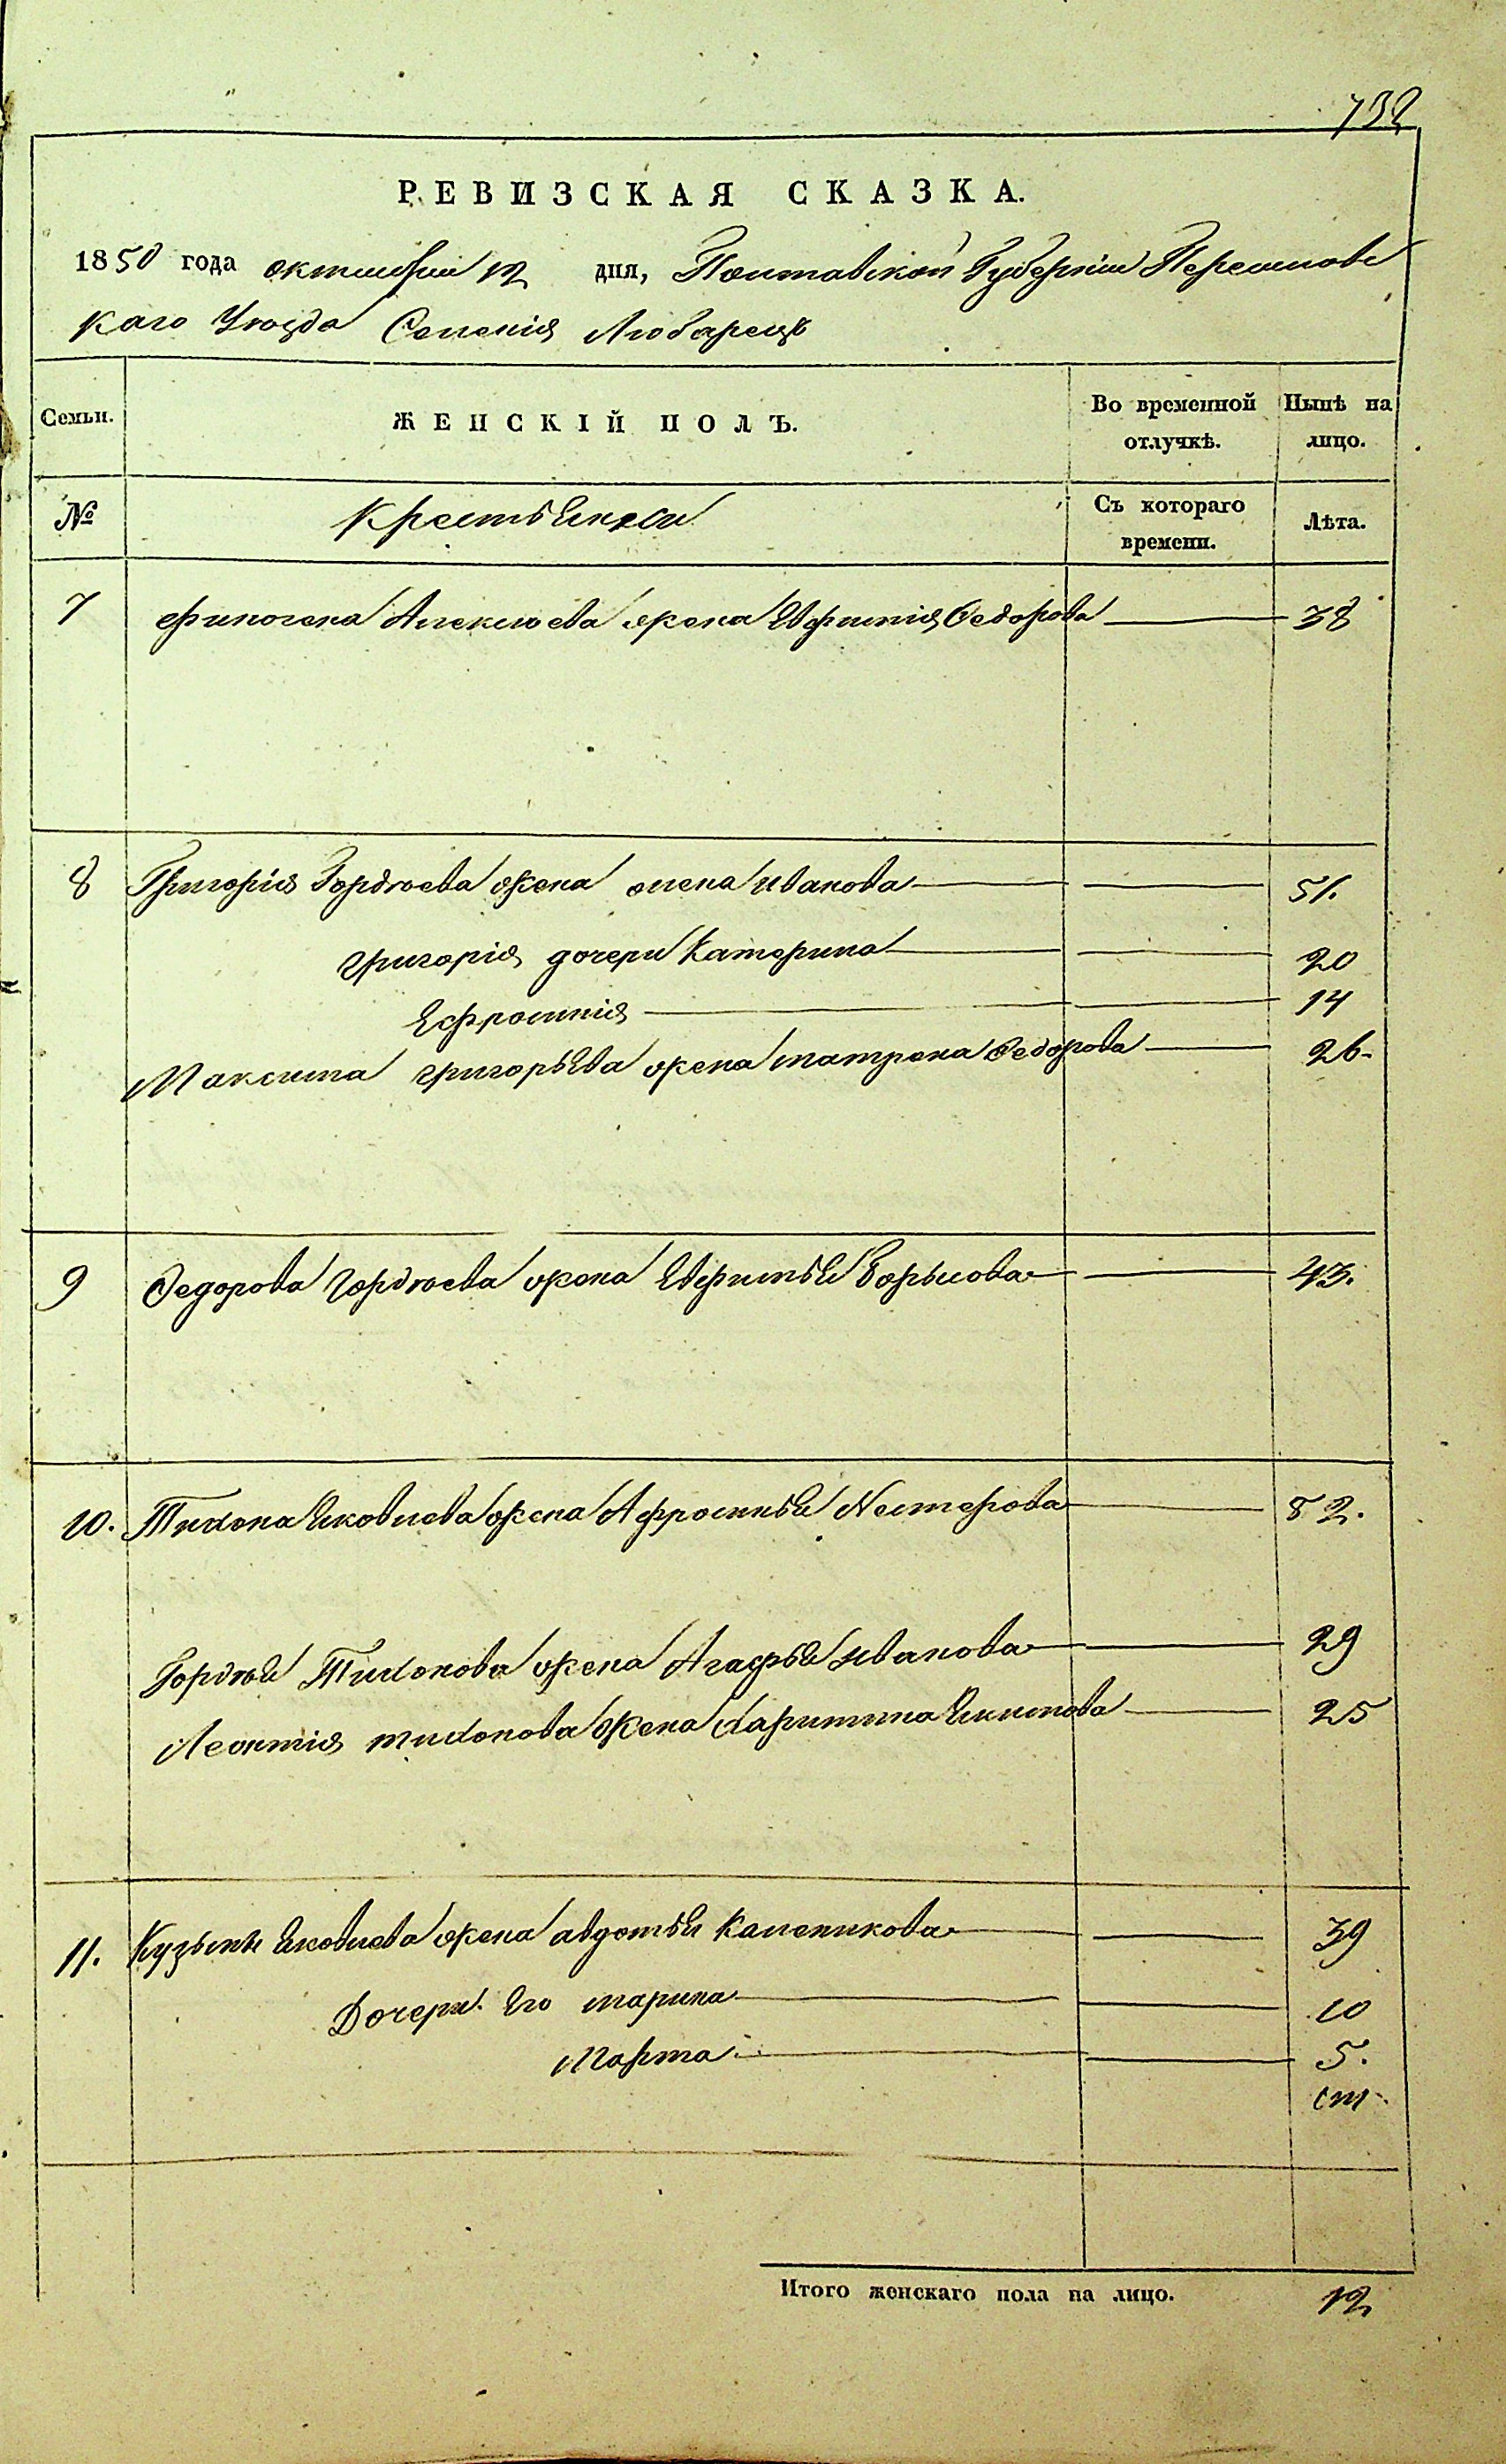 732
РЕВИЗСКАЯ СКАЗКА.
1850 года октября 12 дня, Полтавской Губернии Переяславс
каго Уѣзда Селенія Любарецъ
Семьи.
ЖЕНСКІЙ ПОЛЪ.
Во временной отлучкѣ.
Нынѣ на лицо.
№
Крестьянки
Съ котораго времени.
Лѣта.
7 Финогена Алексѣева жена Евфимія Федорова 38
8 Григорія Гордѣева жена олена иванова 51.
григорія дочери Катерина 20
Ефросинія 14
Максима григорьева жена матрена Федорова 26
9 Федорова Гордѣева жена Евфимья Борысова 43.
10. Тихона Яковлева жена Афросинья Нестерова 52.
Гордѣя Тихонова жена Агафья иванова 29
Леонтія тихонова жена Харитина Якимова 25
11. Кузьмы Яковлева жена авдотья Каленикова 39
Дочери Его марина 10
Марта 5.
Итого женскаго пола на лицо. 12